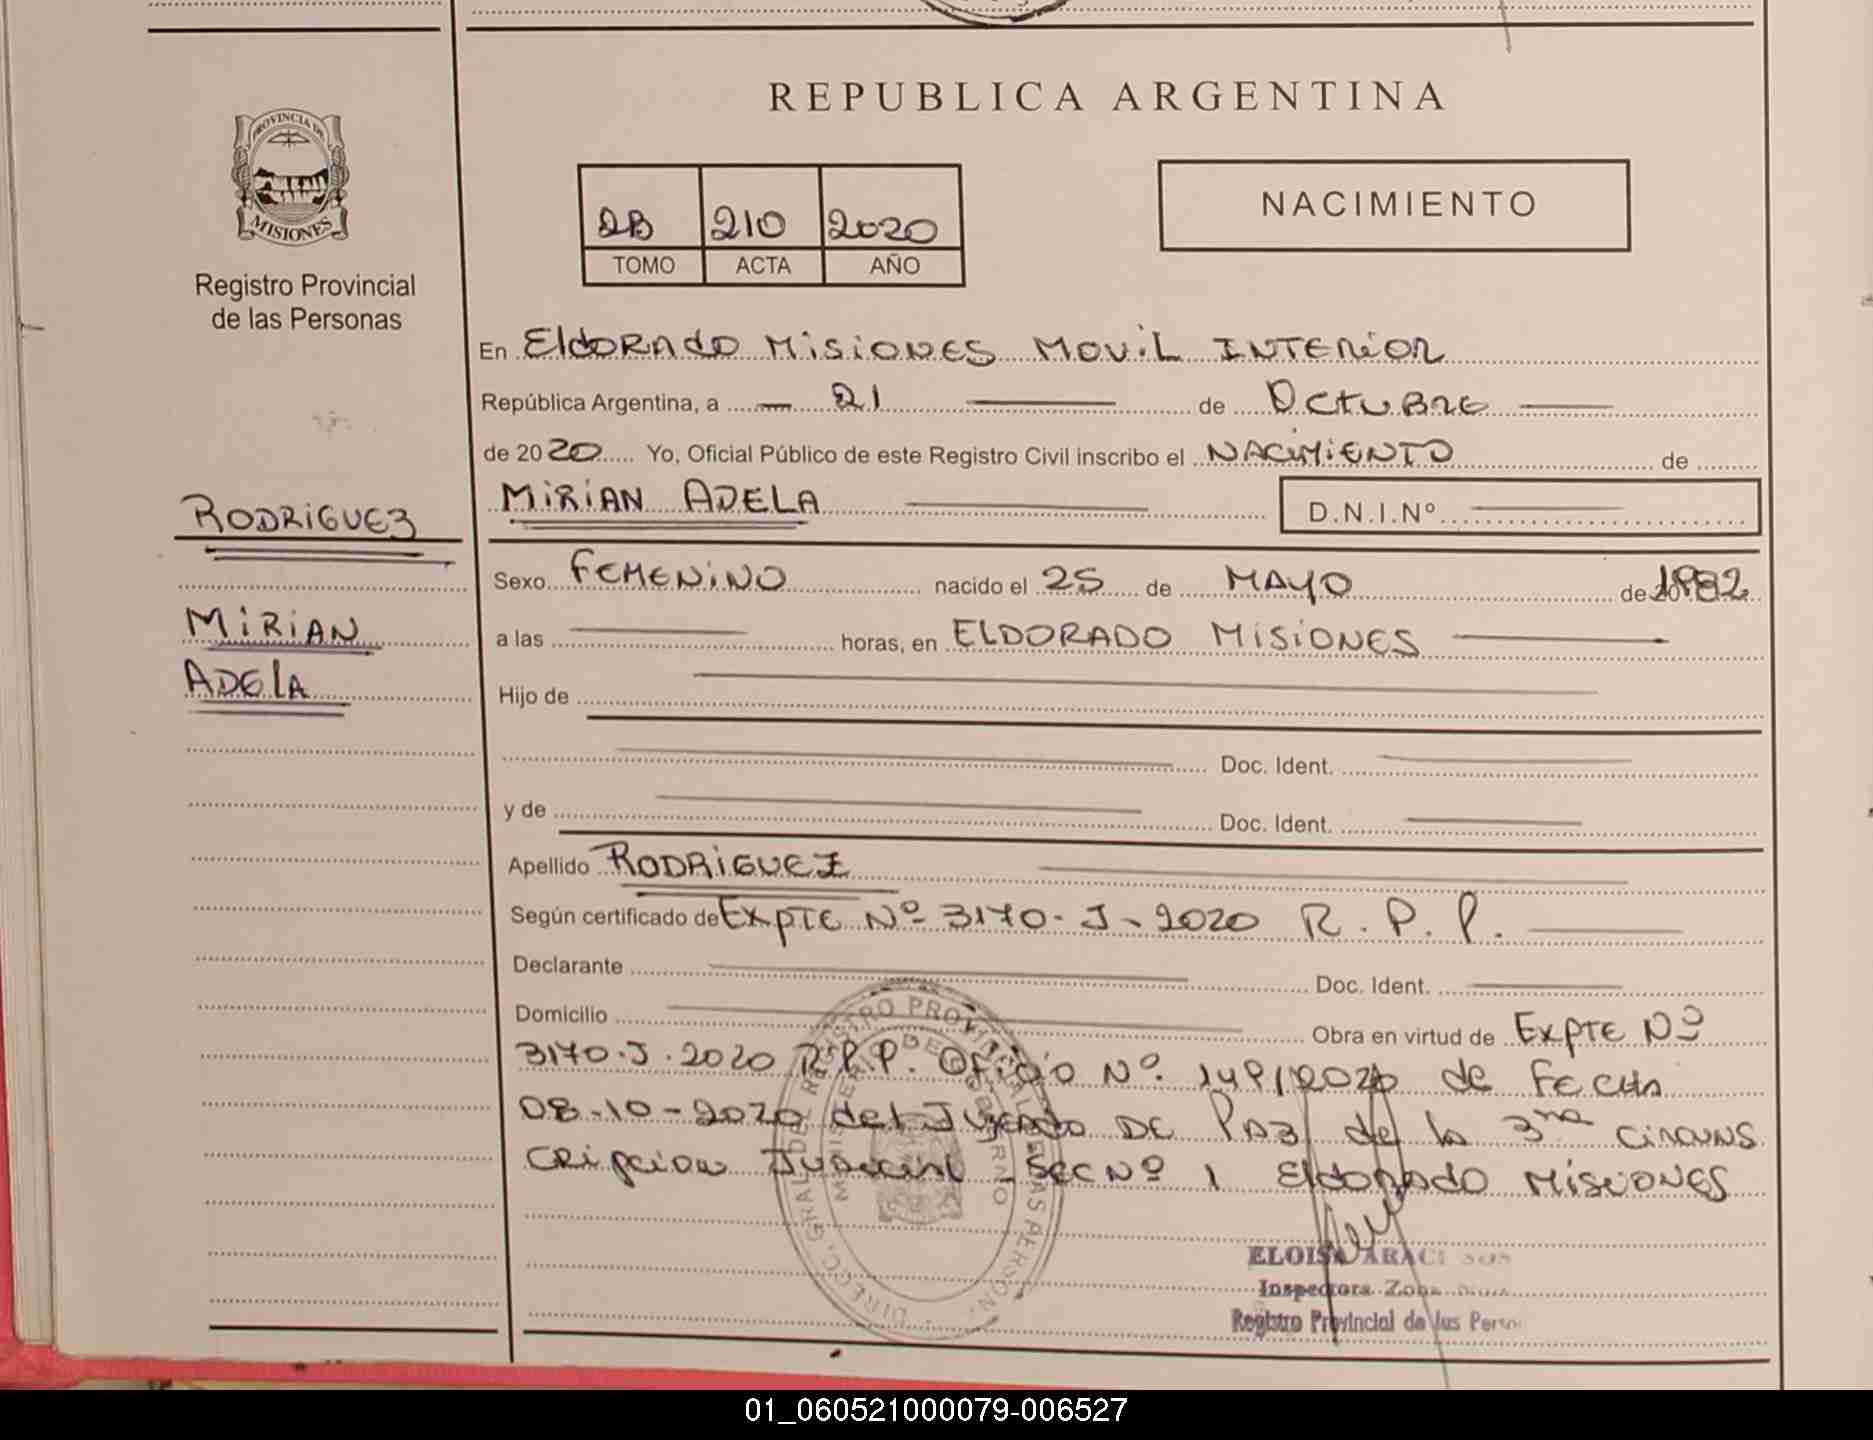 REPUBLICA ARGENTINA
PROVINCIA DE
MISIONES
Registro Provincial
de las Personas
2B 210 2020
TOMO ACTA AÑO
NACIMIENTO
En Eldorado Misiones Movil Interior
República Argentina, a 21 de Octubre
de 2020 Yo, Oficial Público de este Registro Civil inscribo el NACIMIENTO de
RODRIGUEZ
MIRIAN ADELA D.N.I.Nº
Sexo FEMENINO nacido el 25 de MAYO de 1982
MIRIAN
a las horas, en ELDORADO MISIONES
ADELA
Hijo de
Doc. Ident.
y de Doc. Ident.
Apellido RODRIGUEZ
Según certificado de EXPTE Nº 3170-J-2020 R.P.P.
Declarante Doc. Ident.
Domicilio Obra en virtud de EXPTE Nº
3170.J.2020 R.P.P. Oficio Nº 149/2020 de FECHA
08-10-2020 del Juzgado DE PAZ de la 3ra Circuns
cripcion Judicial - Sec Nº 1 Eldorado MISIONES
DIRECC. GRAL. DEL REGISTRO PROVINCIAL DE LAS PERSON.
MINISTERIO DE GOBIERNO
ELOISA ARACI
Inspectora Zona
Registro Provincial de las Perso
01_060521000079-006527